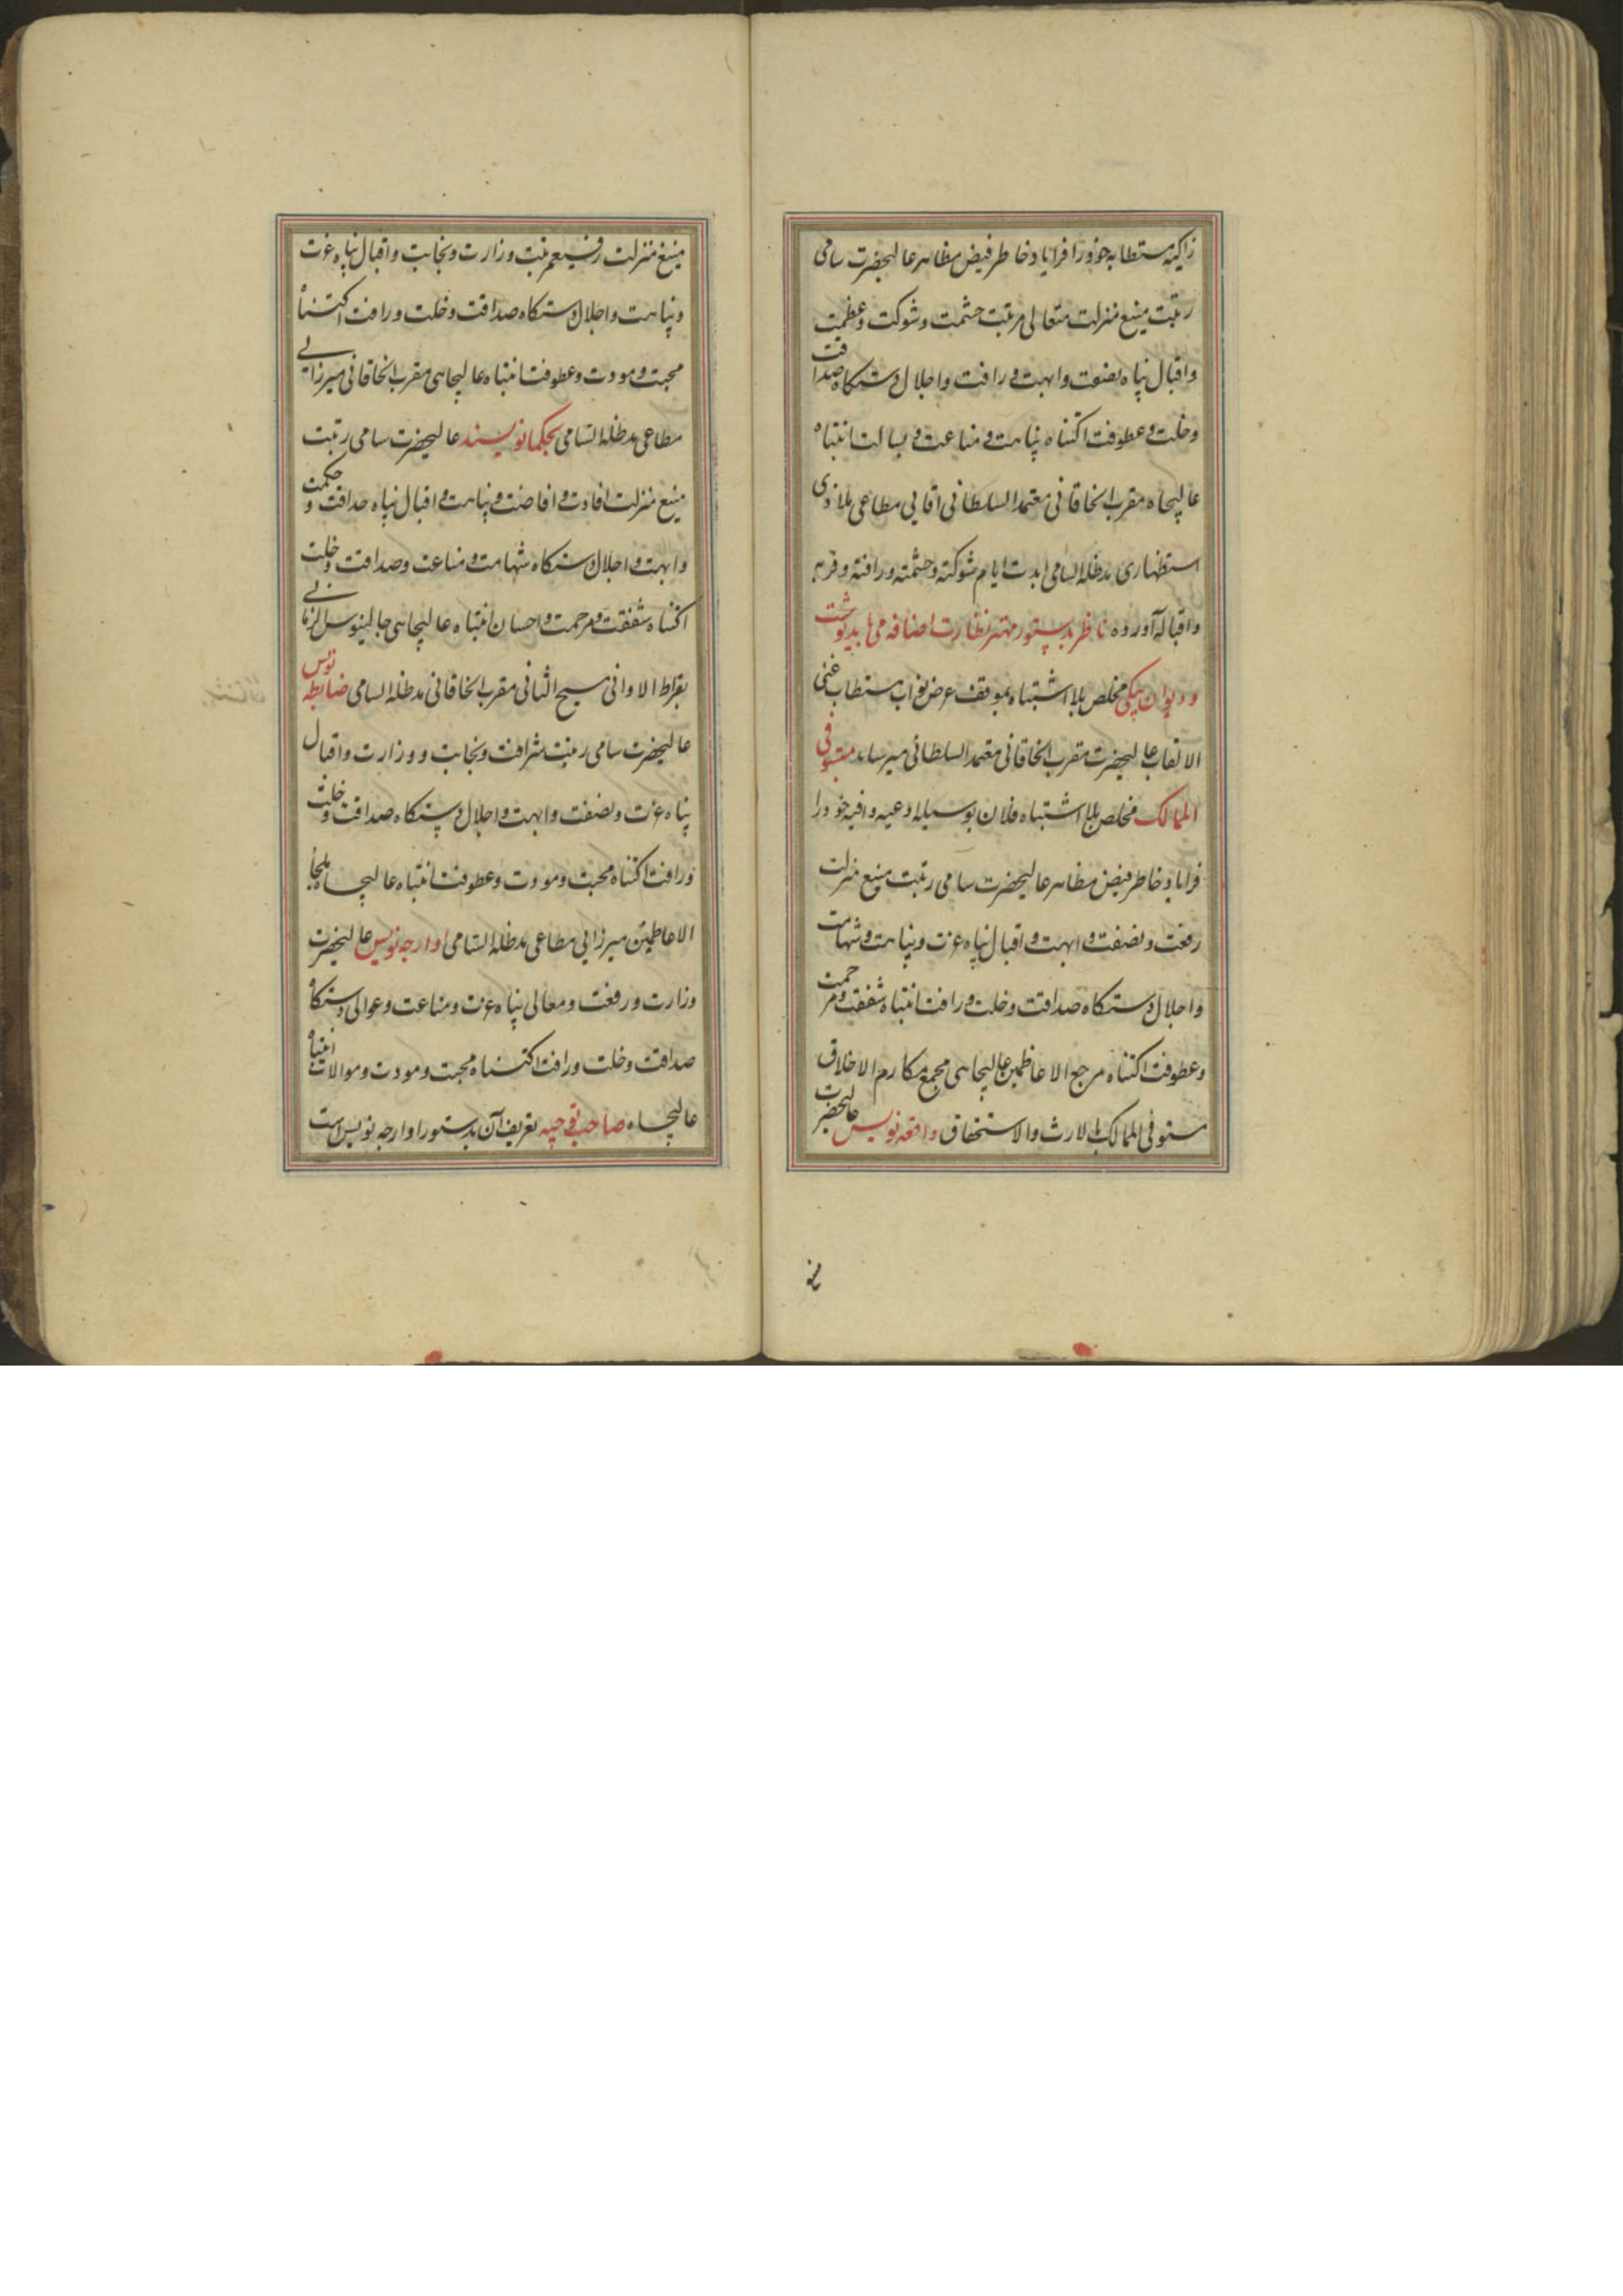 زاکیه مستطابه خود را فرایاد خاطر فیض مظاهر عالیحضرت سامی
رتبت منیع منزلت متعالی مرتبت حشمت و شوکت و عظمت
و اقبال پناه نصفت و ابهت و رافت و اجلال دستگاه صداقت
و خلت و عطوفت اکتناه نباهت و مناعت و بسالت انتباه
عالیجاه مقرب الخاقانی معتمد السلطانی اقایی مطاعی ملاذی
استظهاری مدظله السامی ابدت ایام شوکته و حشمته و رافته و قربه
و اقباله آورده ناظر بدستور مهتر نظارت اضافه می باید نوشت
و دیوان بیکی مخلص بلا اشتباه بموقف عرض نواب مستطاب غنی
الالقاب عالیحضرت مقرب الخاقانی معتمد السلطانی میرساند مستوفی
الممالک مخلص بلا اشتباه فلان بوسیله ادعیه وافیه خود را
فرایاد خاطر فیض مظاهر عالیحضرت سامی رتبت منیع منزلت
رفعت و نصفت و ابهت و اقبال پناه عزت و نباهت و شهامت
و اجلال دستگاه صداقت و خلت و رافت انتباه شفقت و مرحمت
و عطوفت اکتناه مرجع الاعاظمین عالیجاهی مجمع مکارم الاخلاق
مستوفی الممالک بالارث والاستحقاق واقعه نویس عالیحضرت
منیع
منیع منزلت رفیع مرتبت وزارت و نجابت و اقبال پناه عزت
و نباهت و اجلال دستگاه صداقت و خلت و رافت اکتناه
محبت و مودت و عطوفت انتباه عالیجاهی مقرب الخاقانی میرزایی
مطاعی مدظله السامی بحکما نویسند عالیحضرت سامی رتبت
منیع منزلت افادت و افاضت و نباهت و اقبال پناه حذاقت و حکمت
و ابهت و اجلال دستگاه شهامت و مناعت و صداقت و خلت
اکتناه شفقت و مرحمت و احسان انتباه عالیجاهی جالینوس الزمانی
بقراط الاوانی مسیح الثانی مقرب الخاقانی مدظله السامی ضابطه نویس
عالیحضرت سامی رتبت شرافت و نجابت و وزارت و اقبال
پناه عزت و نصفت و ابهت و اجلال دستگاه صداقت و خلت
و رافت اکتناه محبت و مودت و عطوفت انتباه عالیجاه ملجا
الاعاظمین میرزایی مطاعی مدظله السامی اوارجه نویس عالیحضرت
وزارت و رفعت و معالی پناه عزت و مناعت و عوالی دستگاه
صداقت و خلت و رافت اکتناه محبت و مودت و موالات انتباه
عالیجاه صاحب توجیه تعریف آن بدستور اوارجه نویس است